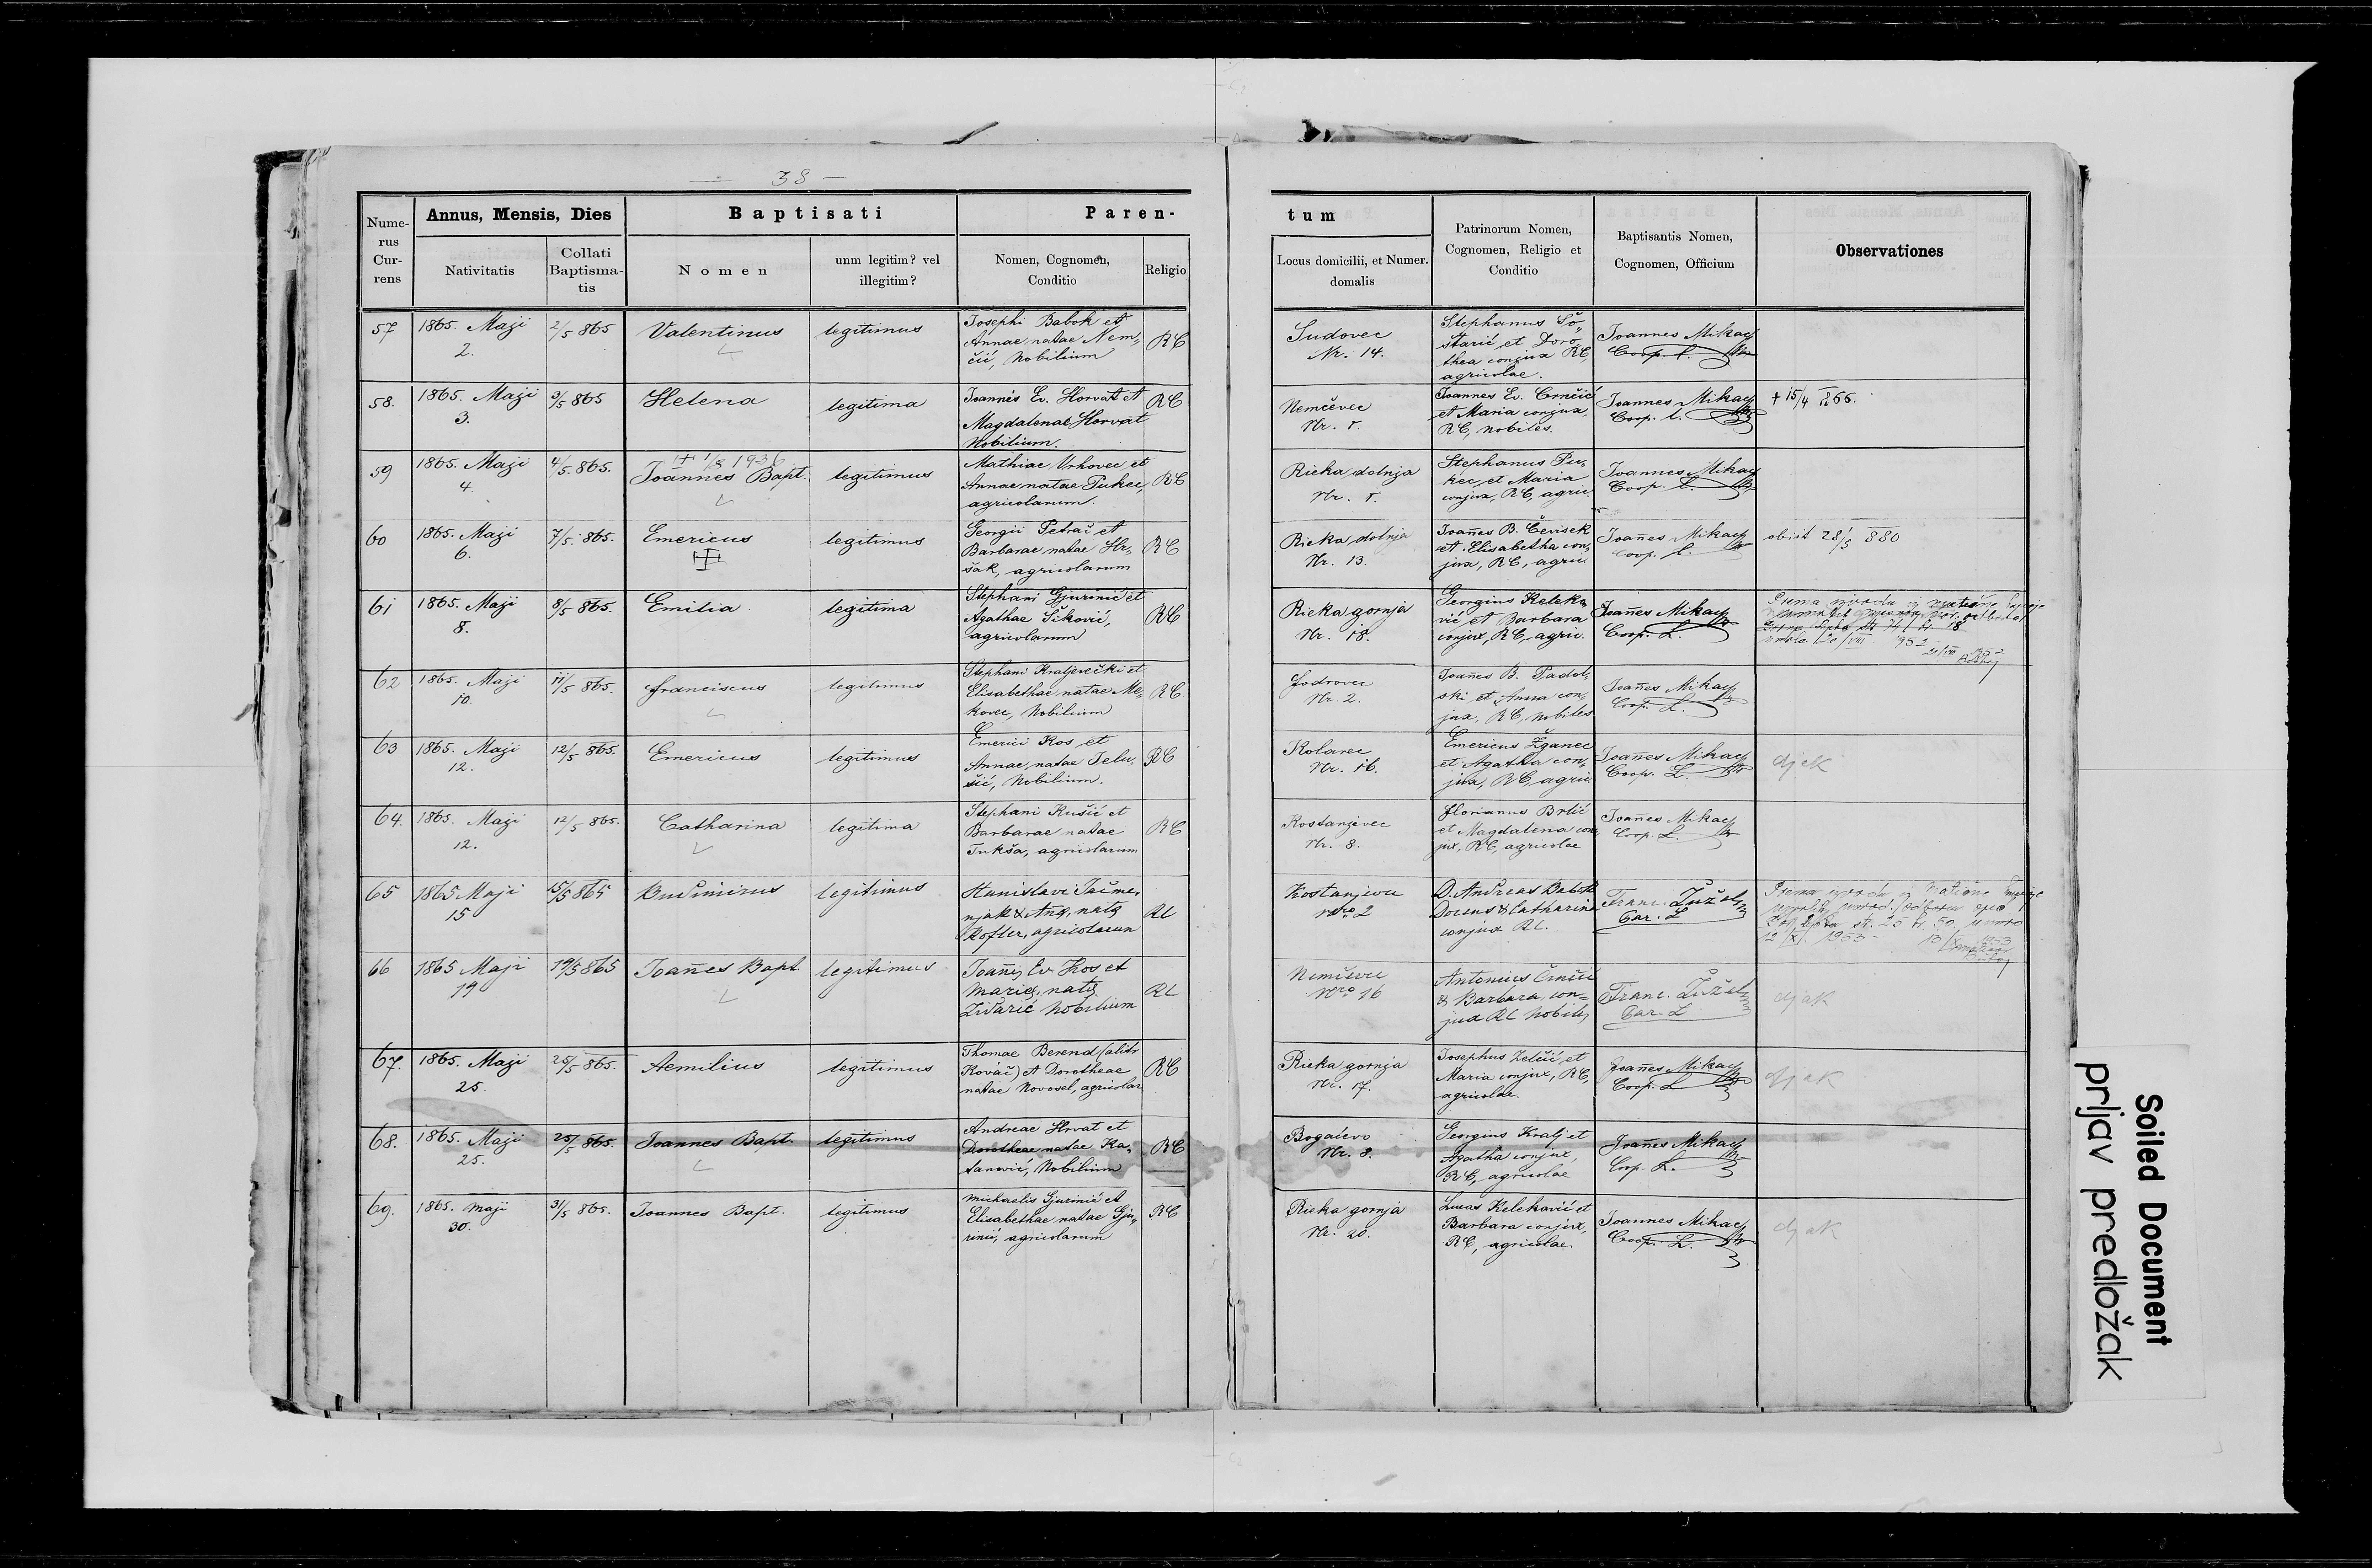 — 38 —
Nume-
rus
Cur-
rens
Annus, Mensis, Dies
Nativitatis
Collati
Baptisma-
tis
Baptisati
Nomen
unm legitim? vel
illegitim?
Paren-
Nomen, Cognomen,
Conditio
Religio
tum
Locus domicilii, et Numer.
domalis
Patrinorum Nomen,
Cognomen, Religio et
Conditio
Baptisantis Nomen,
Cognomen, Officium
Observationes
57
1865. Maji
2.
2/5 865
Valentinus
legitimus
Josephi Babok et
Annae natae Nem„
čić, Nobilium
RC
Sudovec
Nr. 14.
Stephanus Šo„
štarić et Doro„
thea conjux RC,
agricolae.
Joannes Mikacz
Coop. l.
58.
1865. Maji
3.
3/5 865
Helena
legitima
Joannes Ev. Horvat et
Magdalenae Horvat
Nobilium.
RC
Nemčevec
Nr.
Joannes Ev. Crnčić
et Maria conjux,
RC, nobiles.
Joannes Mikacz
Coop. l.
+ 15/4 866.
59
1865. Maji
4.
4/5. 865.
1/8 1936
Joannes Bapt.
legitimus
Mathiae Vrhovec et
Annae natae Pukec,
agricolarum.
RC
Rieka dolnja
Nr.
Stephanus Pu„
kec et Maria
conjux, RC, agric.
Joannes Mikacz
Coop. L.
60
1865. Maji
6.
7/5. 865.
Emericus
legitimus
Georgii Petrač et
Barbarae natae Hr„
šak, agricolarum
RC
Rieka dolnja
Nr. 13.
Joañes B. Čevisek
et Elisabetha con„
jux, RC, agric.
Joañes Mikacz
Coop. L.
obiit 28/5 880
61
1865. Maji
8.
8/5 865.
Emilia
legitima
Stephani Gjurinić et
Agathae Šiković,
agricolarum
RC
Rieka gornja
Nr. 18.
Georgius Keleka„
vić et Barbara
conjux, RC, agric.
Joañes Mikacz
Coop. L.
Prema izvodu iz matične
62
1865. Maji
10.
11/5 865.
Franciscus
legitimus
Stephani Kraljevečki et
Elisabethae natae Me„
kovec, Nobilium
RC
Fodrovec
Nr. 2.
Joañes B. Padol„
ski et Anna con„
jux, RC, nobiles
Joañes Mikacz
Coop. L.
63
1865. Maji
12.
12/5 865.
Emericus
legitimus
Emerici Kos et
Annae, natae Delu„
šić, Nobilium.
RC
Kolarec
Nr. 16.
Emericus Žganec
et Agatha con„
jux, RC, agric.
Joañes Mikacz
Coop. L.
djak
64.
1865. Maji
12.
12/5 865.
Catharina
legitima
Stephani Kušić et
Barbarae natae
Tukša, agricolarum
RC
Kostanjevec
Nr. 8.
Florianus Brlić
et Magdalena con„
jux, RC, agricolae
Joañes Mikacz
Coop. L.
65
1865 Maji
15
15/5 865
Budimirus
legitimus
njak & natę
Kofler, agricolarum
RC
Kostanjevec
Nro 2
D. Andreas Babok
Docens & Catharina
conjux RC.
Franc. Žužel
Par. L
Prema izvodu iz Matične
12/XI. 1953
66
1865 Maji
19
19/5 865
Joañes Bapt
legitimus
Joañis Ev Kos et
Marię, natę
Židarić Nobilium
RC
Nemčevec
Nro 16
Antonius Crnčić
& Barbara, con=
jux RC Nobiles
Franc. Žužel
Par. L
djak
67.
1865. Maji
25.
25/5 865.
Aemilius
legitimus
Thomae Berend (alitr
Kovač) et Dorotheae
natae Novosel, agricolar
RC
Rieka gornja
Nr. 17.
Josephus Zelčić, et
Maria conjux, RC,
agricolae.
Joañes Mikacz
Coop. L
djak
68.
1865. Maji
25.
25/5 865.
Joannes Bapt.
legitimus
Andreae Hrvat et
Dorotheae natae Ka„
tanović, Nobilium
RC
Bogačevo
Nr. 8.
Georgius Kralj et
Agatha conjux,
RC, agricolae
Joañes Mikacz
Coop. L.
69.
1865. maji
30.
31/5 865.
Joannes Bapt.
legitimus
Michaelis Gjurinić et
Elisabethae natae Gju„
rinić, agricolarum
RC
Rieka gornja
Nr. 20.
Lucas Keleković et
Barbara conjux,
RC, agricolae.
Joannes Mikacz
Coop. L.
djak
Soiled Document
prljav predložak